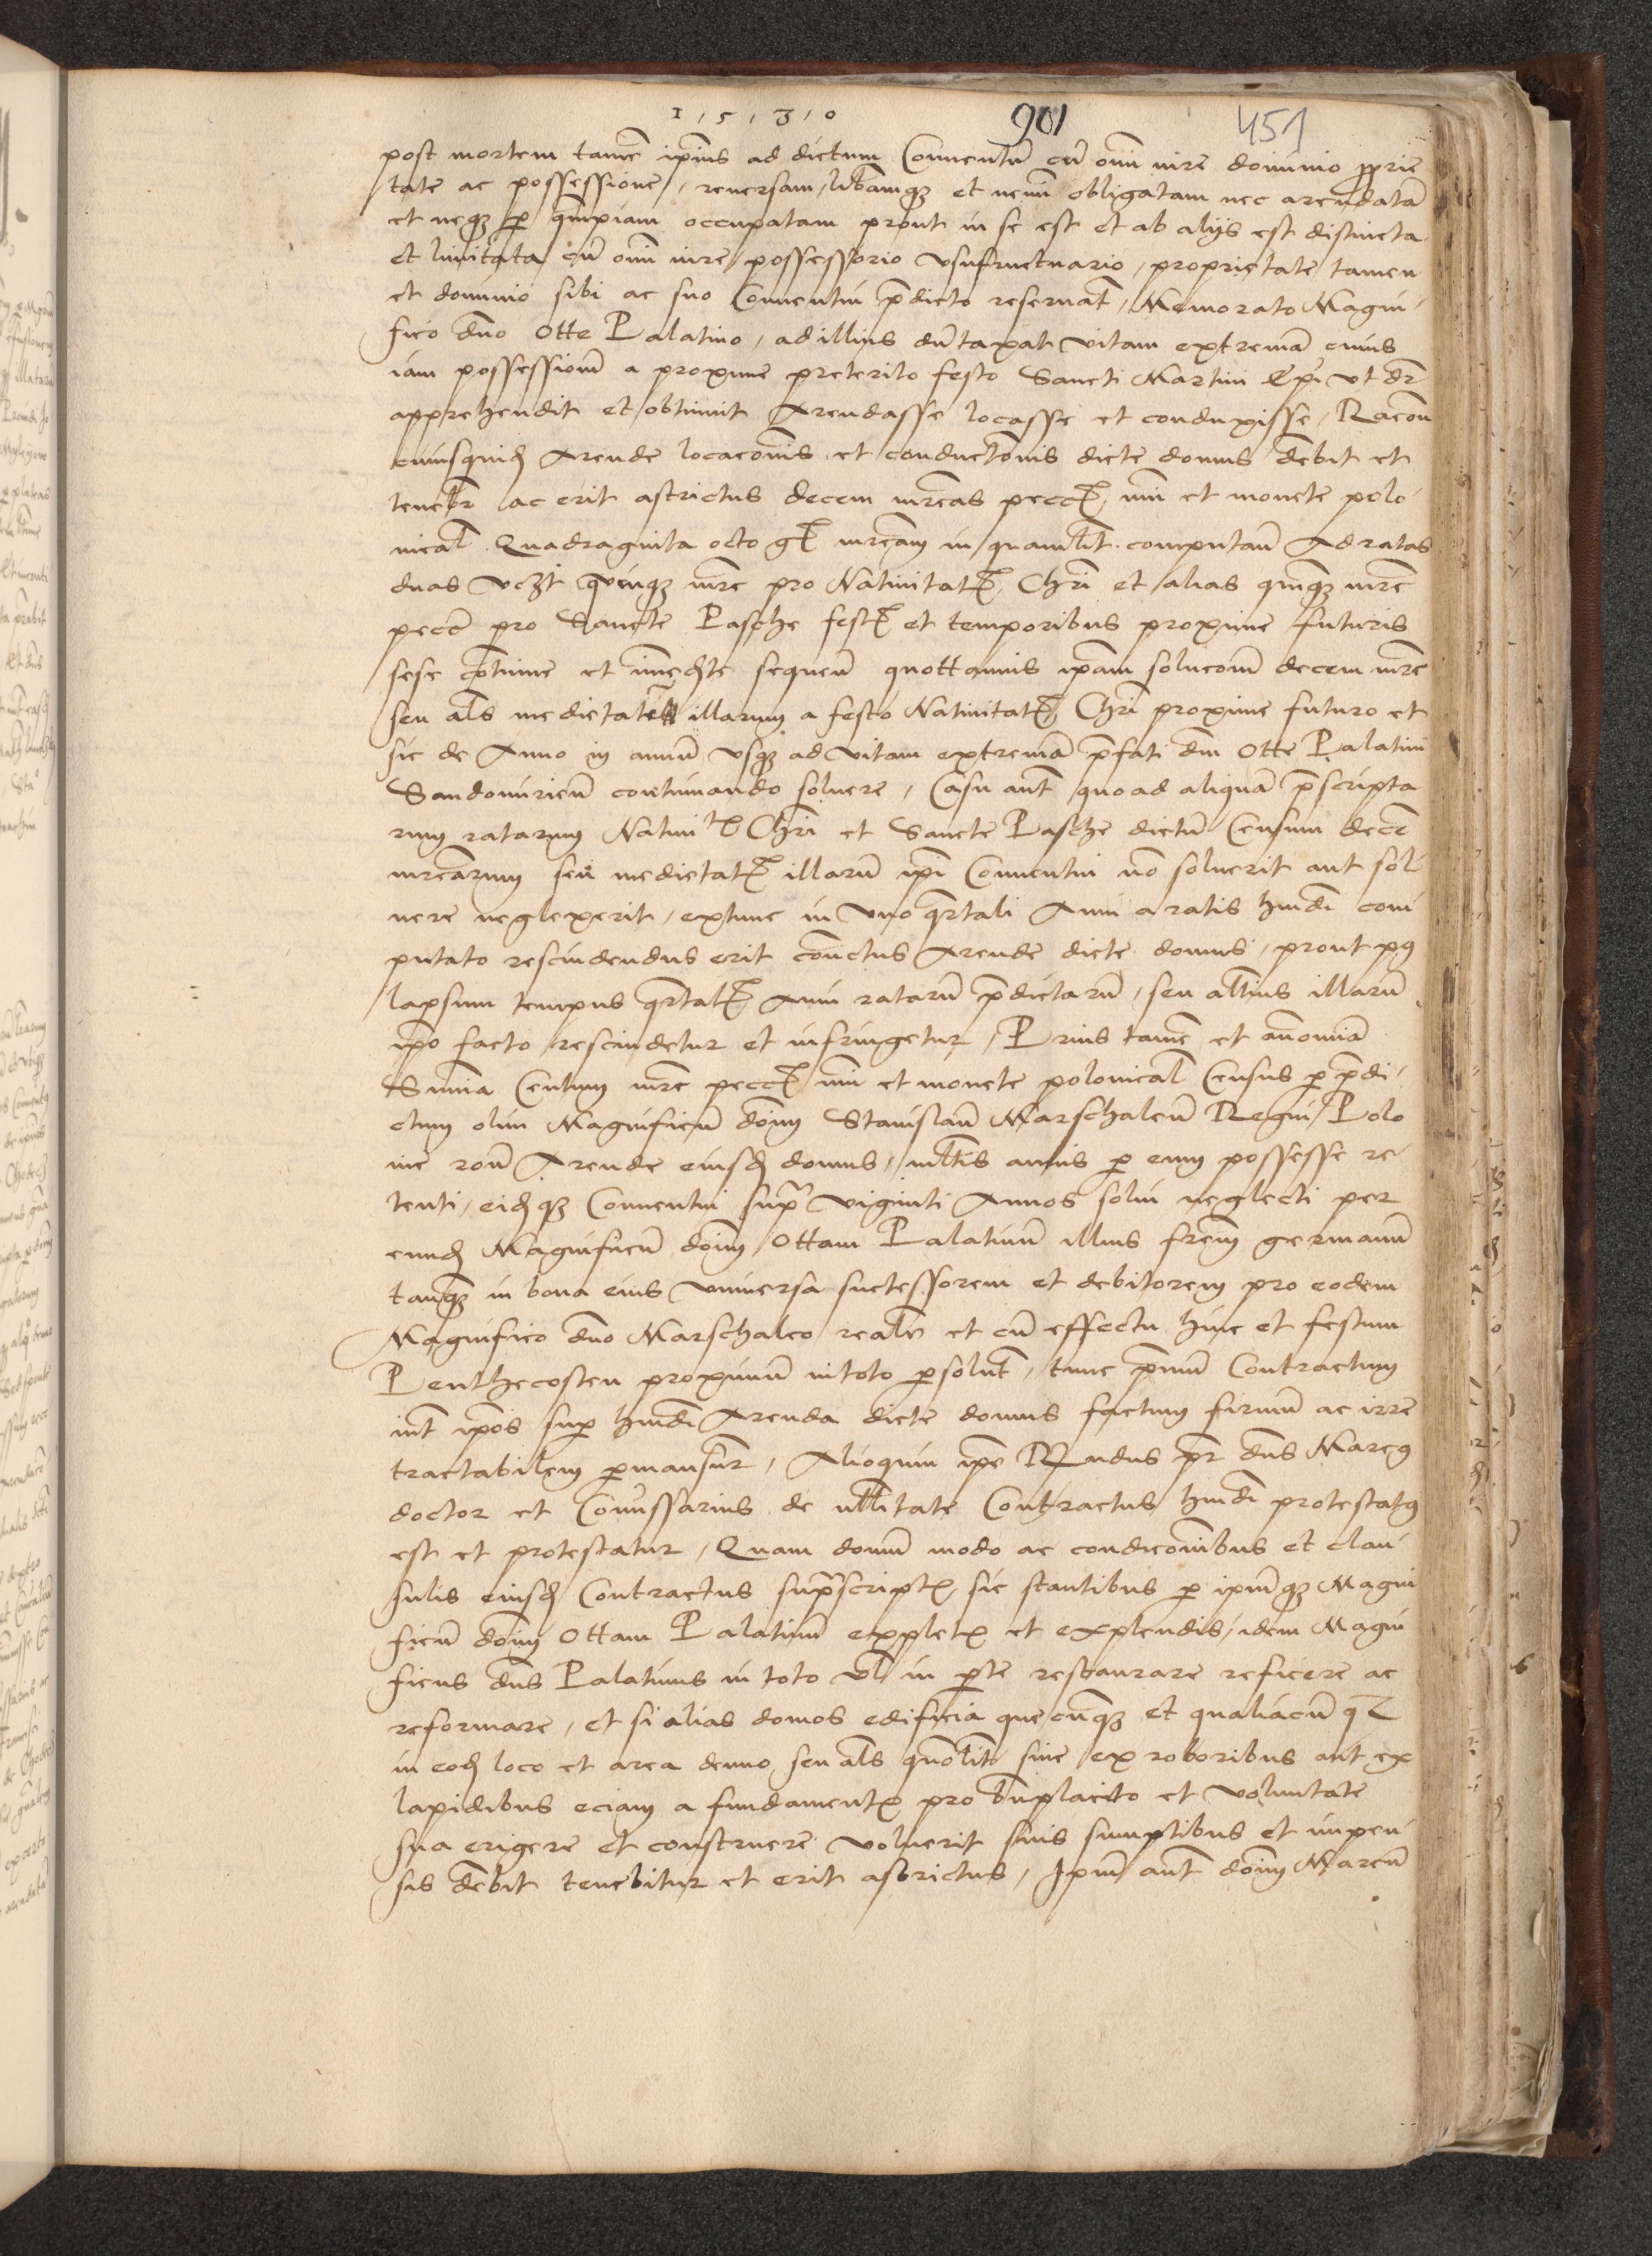 1530 901 451
post mortem tame ipius ad dictum Conuentu cu omi iure dominio prie
tate ac possessione, reuersam, libamqz et nemi obligatam nec arendata
et neqz p quipiam occupatam prout in se est et ab alijs est distincta
et limitata cu omi iure possessorio vsufructuario, proprietate tamen
et dominio sibi ac suo Conuentui pdicto reseruat, Memorato Magni
fico dno Otte Palatino, ad illius duntaxat vitam extrema cuius
iam possessionem a proxime preterito festo Sancti Martini Epi vt dr
apprehendit et obtinuit Arendasse locasse et conduxisse, Racon
cuiusquid Arende locaconis et conductonis dicte domus debit et
tenebr ac erit astrictus decem mrcas pecc mi et monete polo
nical Quadraginta octo g mrcam in quamlt computan Ad ratas
duas vczt quinqz mrc pro Natiuitat Chri et alias quinqz mrc
pecc pro Sancte Pasche fest et temporibus proxime futuris
sese cotinue et imediate sequen quottannis ipam solucom decem mrc
seu als medietate illarum a festo Natiuitat Chri proxime futuro et
sic de Anno in annu vsqz ad vitam extrema pfati dni Otte Palatini
Sandomirien continuando soluere, Casu aut quo ad aliqua pscripta
rum ratarum Natiuit Chri et Sancte Pasche dictu Censum dece
mrcarum seu medietat illaru ipi Conuentui no soluerit aut sol
uere neglexerit, extunc in vno qrtali Anni a ratis hmdi com
putato rescindendus erit conctus Arende dicte domus, prout p9
lapsum tempus qrtal Anni rataru pdictaru, seu altius illaru
ipo facto rescindetur et infringetur, Prius tame et anomia
Suma Centum mrc pecc mi et monete polonical Census p pdi
ctum olim Magnificu dom Stanislau Marschalcu Regni Polo
nie ron Arende eiusd domus, mltis annis p eum possesse re
tenti, eidqz Conuentui supra viginti Annos solui neglecti per
eund Magnificu dom Ottam Palatinum illius frem germanu
tanqz in bona eius vniuersa successorem et debitorem pro eodem
Magnifico dno Marschalco realr et cu effectu hinc et festum
Penthecosten proximum in toto psolut, tunc pmiu Contractum
int ipos sup hmdi Arenda dicte domus factum firmu ac irre
tractabilem pmansur, Alioquin ipe Rndus pr dns Marc9
doctor et Comissarius de nllitate Contractus hmdi protestat9
est et protestatur, Quam domu modo ac condiconibus et clau
sulis eiusd Contractus suprascript sic stantibus p ipumqz Magni
ficu dom Ottam Palatinu explet et explendis, idem Magni
ficus dns Palatinus in toto vl in pte restaurare reficere ac
reformare, et si alias domos edificia quecunqz et qualiacunqz
in eod loco et area denuo seu als quolit siue ex roboribus aut ex
lapidibus eciam a fundament pro bnplacito et voluntate
sua erigere et construere voluerit suis sumptibus et impen
sis debit tenebitur et erit astrictus, Ipum aut dom Marcu